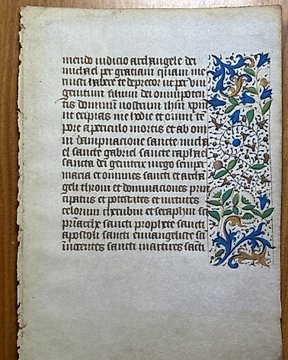 mendo iudicio archangele dei
michael per graciam quam me
ruisti habere te deprecor ut per vni
genitum filium dei omnipoten
tis dominum nostrum ihesum xpm
ut eripias me hodie et omni te
pore a periculo mortis et ab om
ni dampnacione sancte micha
el sancte gabriel sancte raphael
sancta dei genitrix virgo semper
maria et omnes sancti et archa
geli throni et dominaciones prin
cipatus et potestates et virtutes
celorum cherubin et seraphin sci
priarche sancti prophete sancti
apostoli sancti euuangeliste sci
sancti martires sancti